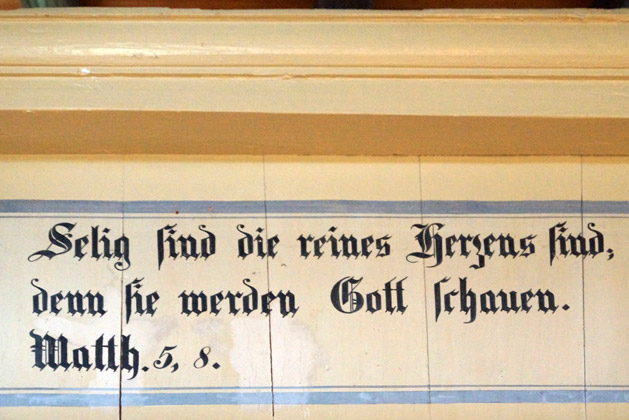 Selig sind die reines Herzens sind;
denn sie werden Gott schauen.
Matth. 5, 8.